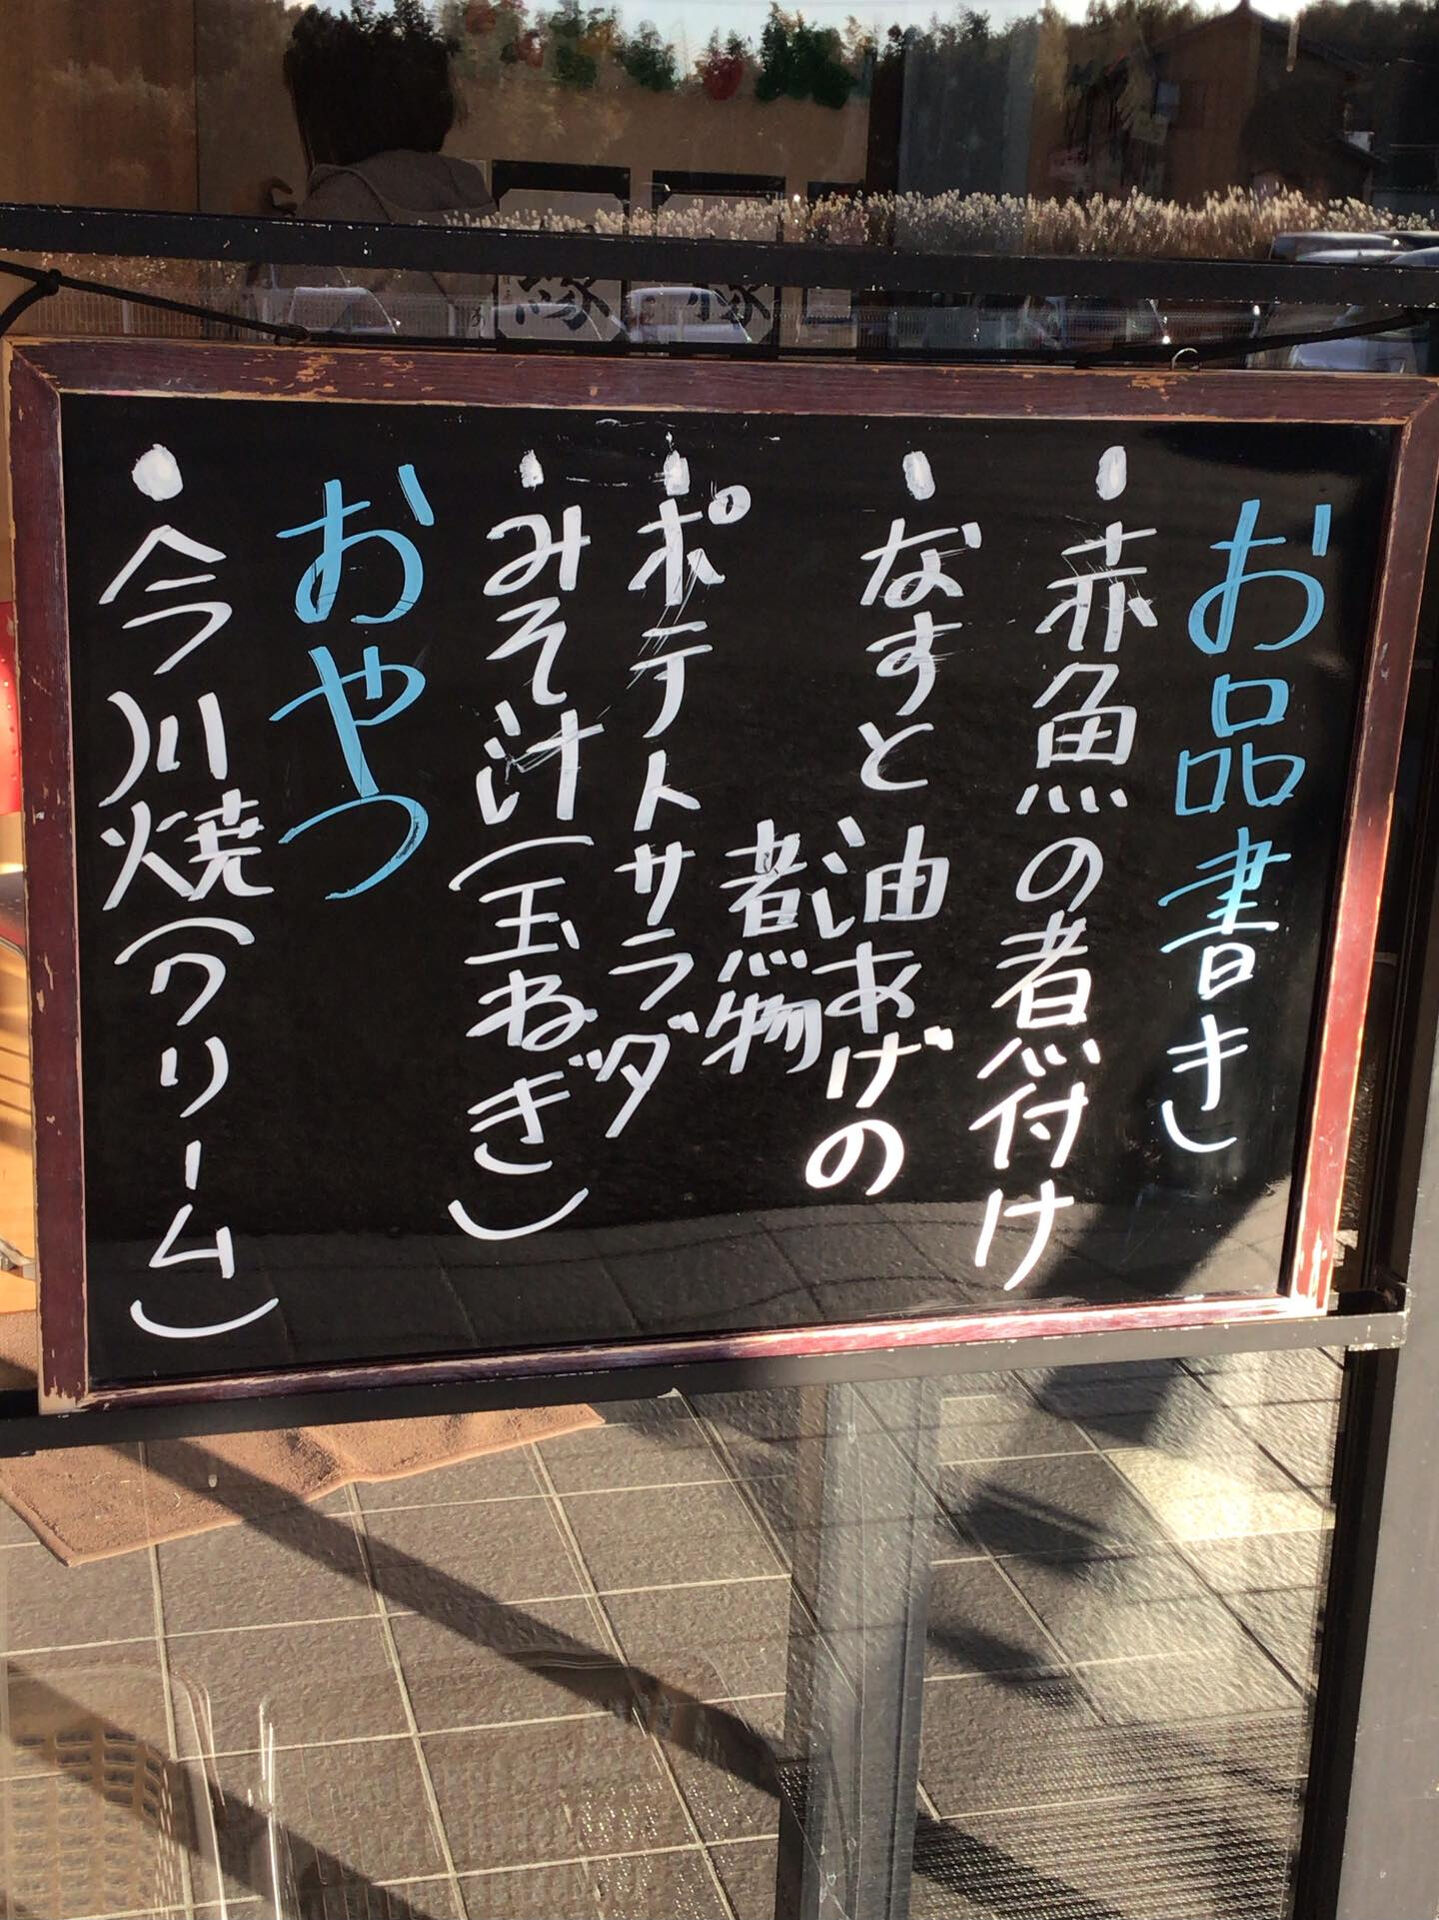 お品書き
・赤魚の煮付け
・なすと油あげの
煮物
・ポテトサラダ
・みそ汁(玉ねぎ)
おやつ
・今川焼(クリーム)
縁
縁